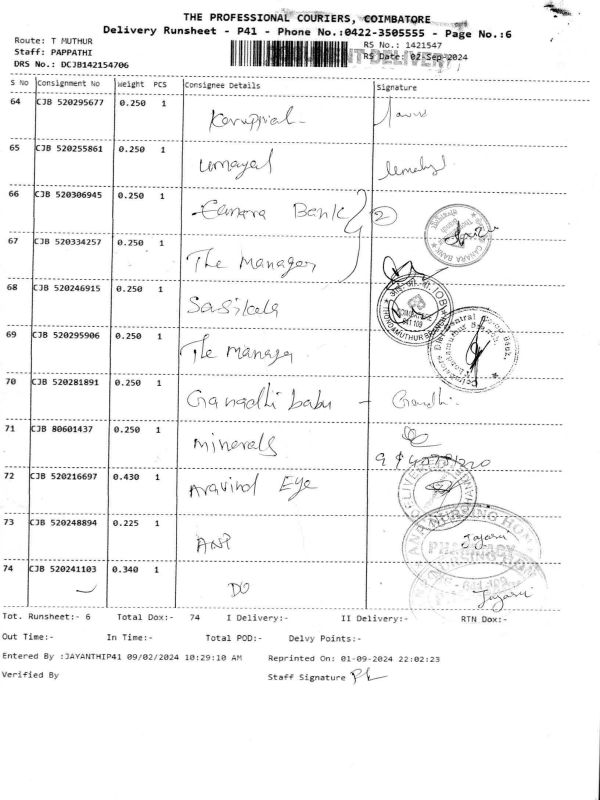 THE PROFESSIONAL COURIERS, COIMBATORE
Delivery Runsheet - P41 - Phone No.:0422-3505555 - Page No.:6
Route: T MUTHUR
RS No.: 1421547
Staff: PAPPATHI
RS Date: 02-Sep-2024
DRS No.: DCJB142154706
S No Consignment No Weight PCS Consignee Details Signature
64 CJB 520295677 0.250 1
65 CJB 520255861 0.250 1 Umayal
66 CJB 520306945 0.250 1 Canara Bank 2
67 CJB 520334257 0.250 1 The Manager
68 CJB 520246915 0.250 1 Sasikala
69 CJB 520295906 0.250 1 The Manager
70 CJB 520281891 0.250 1 Gangadhi babu - Gandhi.
71 CJB 80601437 0.250 1 Minerals
72 CJB 520216697 0.430 1 Aravind Eye
73 CJB 520248894 0.225 1
74 CJB 520241103 0.340 1 DO
Tot. Runsheet:- 6 Total Dox:- 74 I Delivery:- II Delivery:- RTN Dox:-
Out Time:- In Time:- Total POD:- Delvy Points:-
Entered By :JAYANTHIP41 09/02/2024 10:29:10 AM Reprinted On: 01-09-2024 22:02:23
Verified By Staff Signature